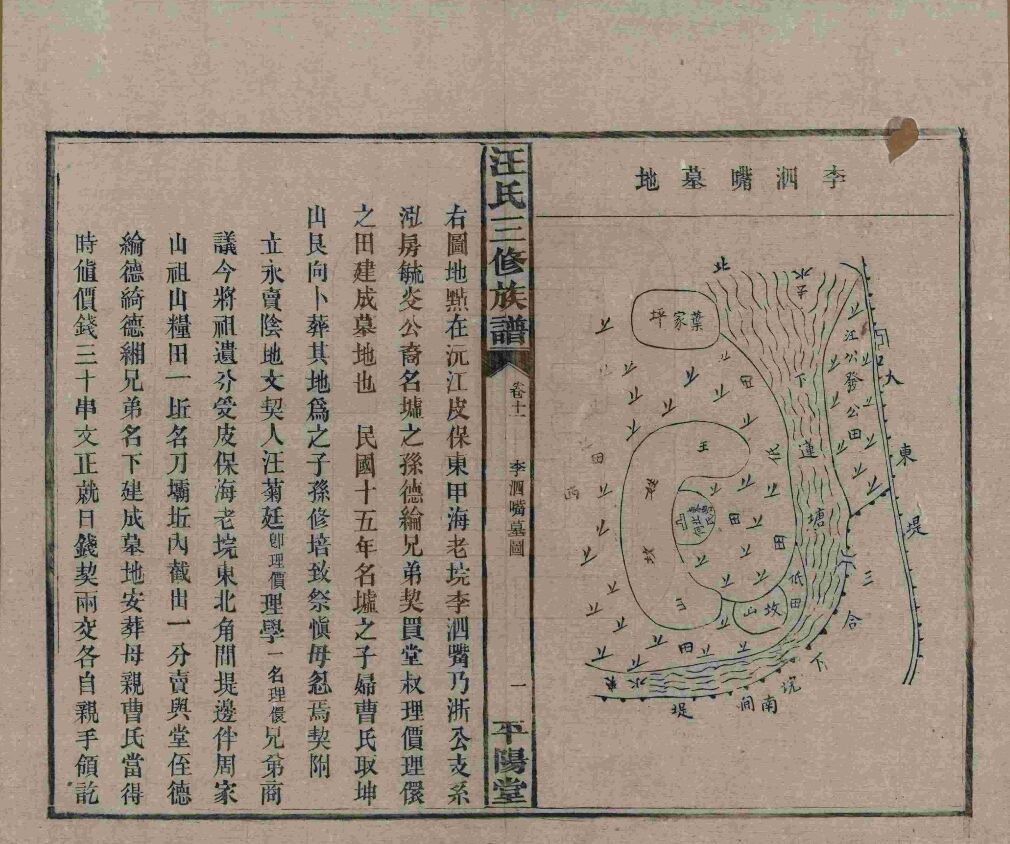 李泗嘴墓地
北
水子
葉家坪
江公發公田
大
東堤
下蓮塘
田
低
王
田
西
坟
田
田
低田
三合
坟山
田
下
垸
南間堤
水
東
汪氏三修族譜
卷十一
李泗嘴墓圖
一
平陽堂
右圖地點在沅江皮保東甲海老垸李泗嘴乃浙公支系
泓房毓炎公裔名墟之孫德綸兄弟契買堂叔理價理儇
之田建成墓地也 民國十五年名墟之子婦曹氏取坤
山艮向卜葬其地爲之子孫修培致祭愼毋忽焉契附
立永賣陰地文契人汪菊廷卽理價理學一名理儇兄弟商
議今將祖遺分受皮保海老垸東北角間堤邊伴周家
山祖山糧田一坵名刀壩坵內截出一分賣與堂侄德
綸德綺德緗兄弟名下建成墓地安葬母親曹氏當得
時値價錢三十串文正就日錢契兩交各自親手領訖